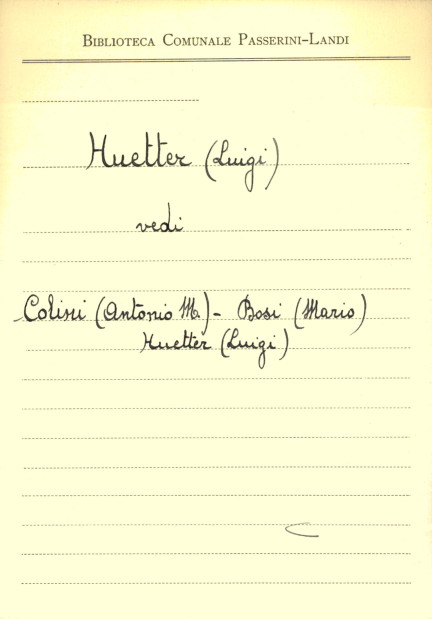 Biblioteca Comunale Passerini-Landi
Huetter (Luigi)
vedi
Colini (Antonio M.) - Bosi (Mario)
Huetter (Luigi)